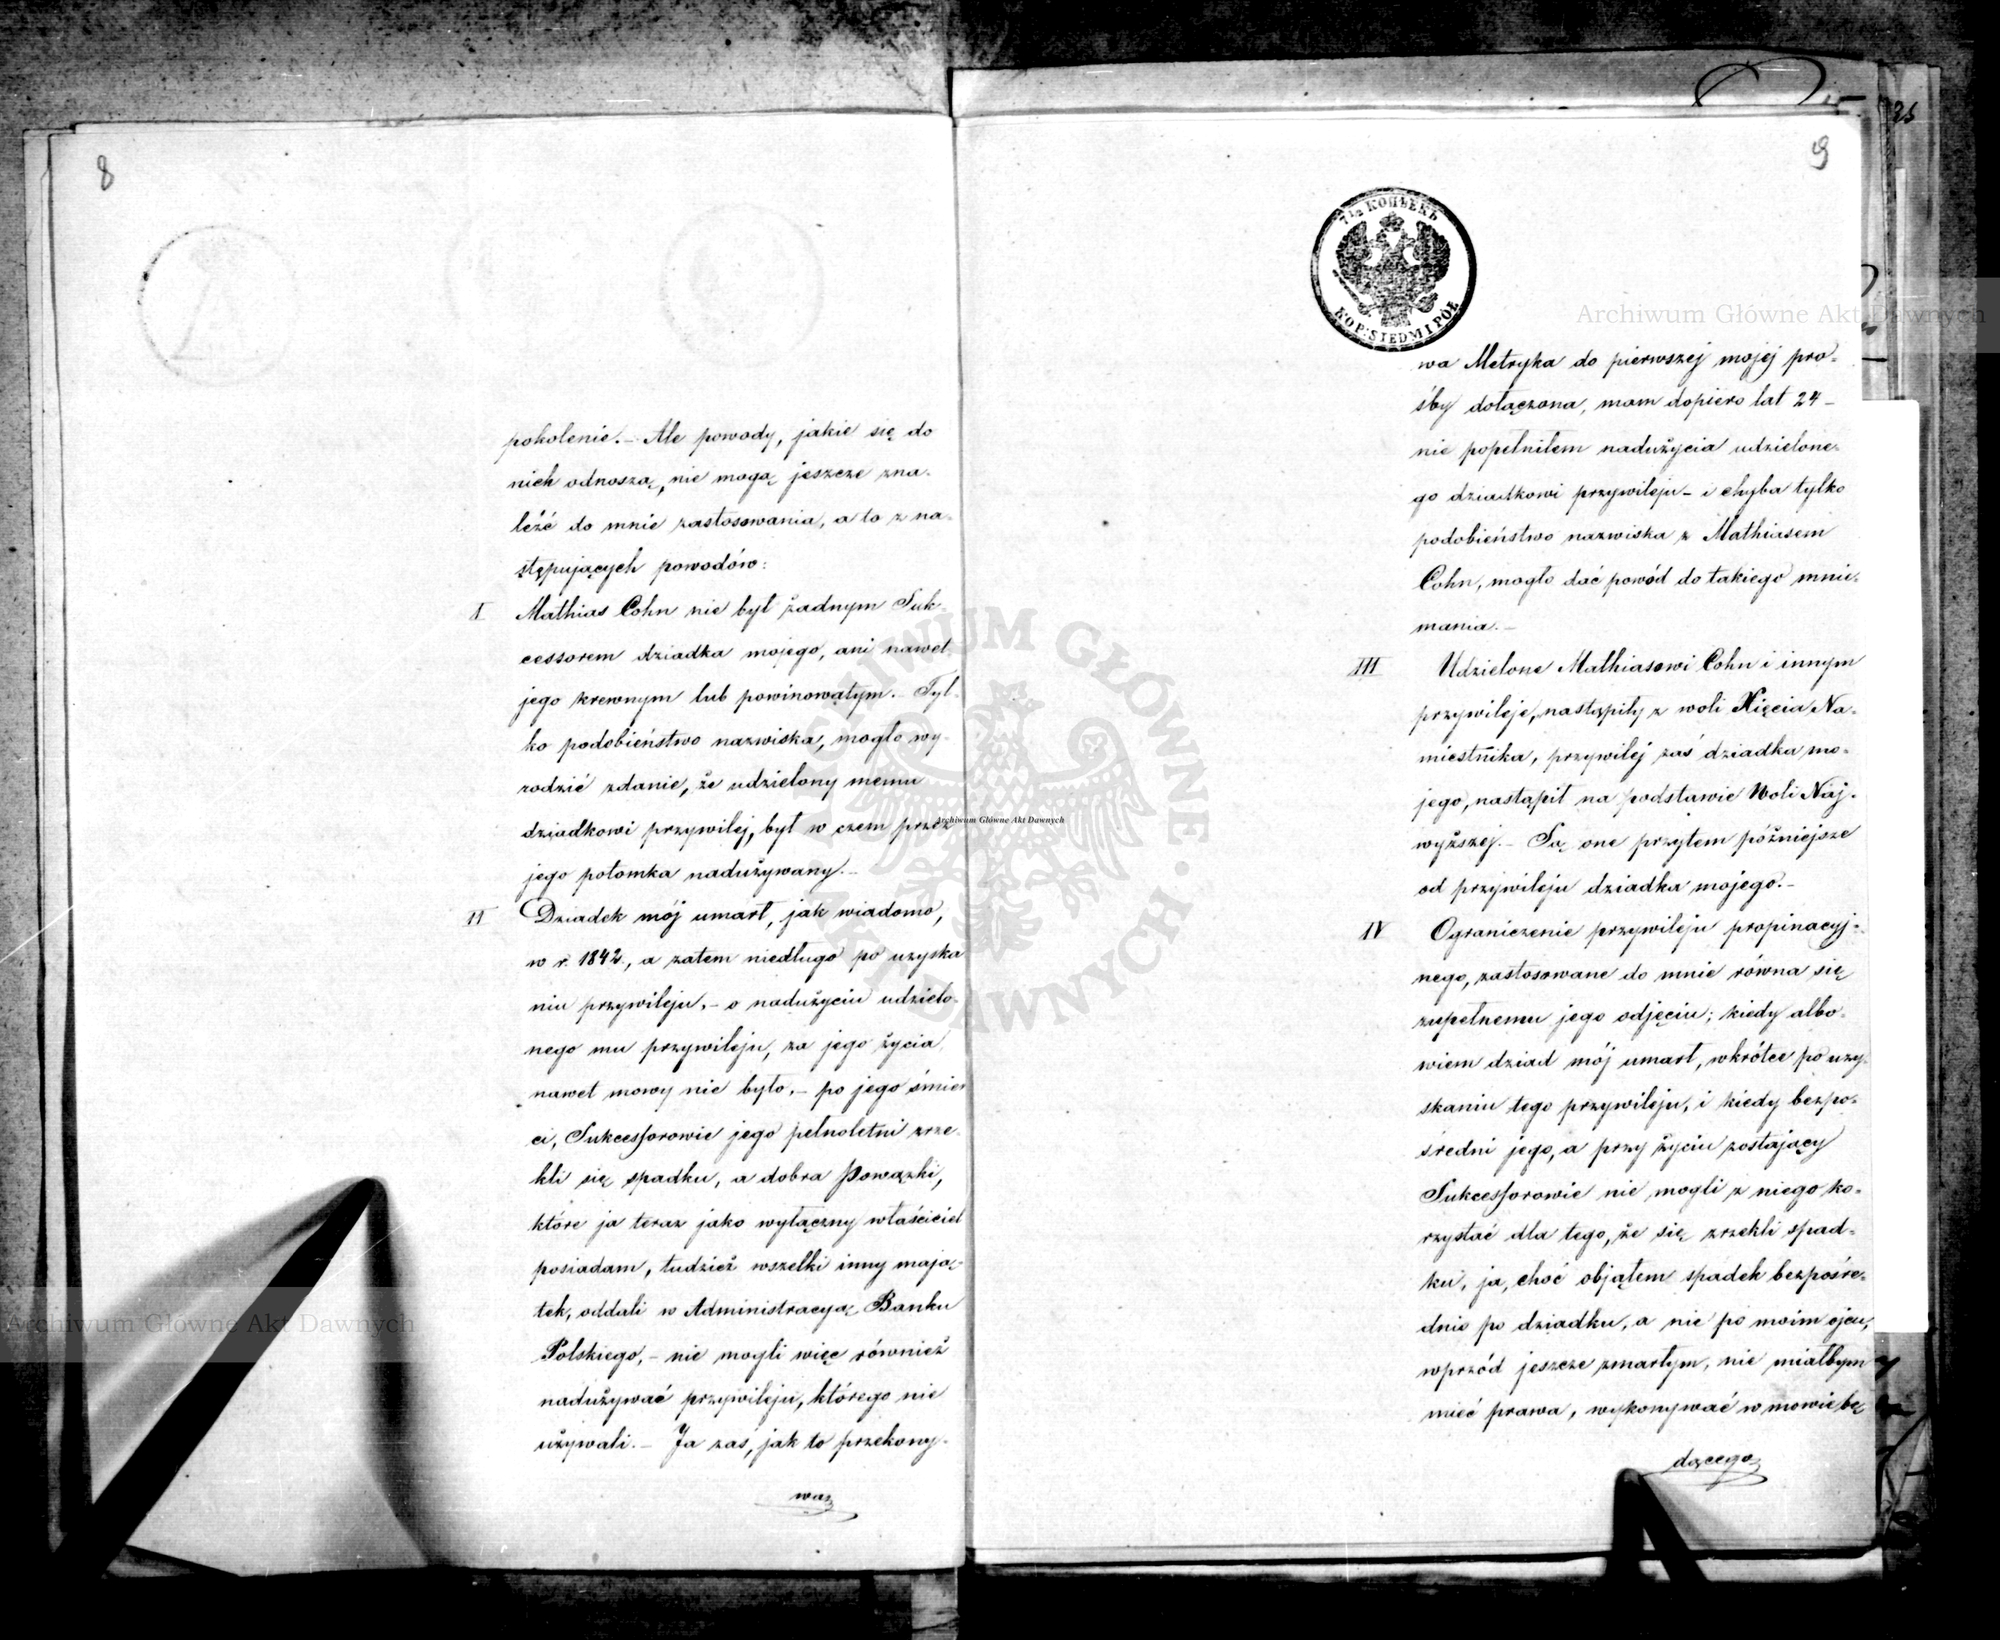 8
pokolenie. – Ale powody, jakie się do
nich odnoszą, nie mogą jeszcze zna-
léźć do mnie zastosowania, a to z na-
stępujących powodów:
I Mathias Cohn nie był żadnym Suk-
cessorem dziadka mojego, ani nawet
jego krewnym lub powinowatym. – Tyl-
ko podobieństwo nazwiska, mogło wy-
rodzić zdanie, że udzielony memu
dziadkowi przywilej, był w czem przez
jego potomka nadużywany. –
II Dziadek mój umarł, jak wiadomo,
w r. 1842, a zatem niedługo po uzyska
niu przywileju, – o nadużyciu udzielo-
nego mu przywileju, za jego życia,
nawet mowy nie było, – po jego śmier
ci, Sukcessorowie jego pełnoletni zrze-
kli się spadku, a dobra Powązki,
które ja teraz jako wyłączny właściciel
posiadam, tudzież wszelki inny mają-
tek, oddali w Administracyą Banku
Polskiego, – nie mogli więc również
nadużywać przywileju, którego nie
używali. – Ja zaś, jak to przekony-
wa
9
25
7½ КОПѢЕКЪ
KOP: SIEDM I PÓŁ
wa Metryka do pierwszej mojej pro-
śby dołączona, mam dopiero lat 24 –
nie popełniłem nadużycia udzielone-
go dziadkowi przywileju – i chyba tylko
podobieństwo nazwiska z Mathiasem
Cohn, mogło dać powód do takiego mnie-
mania. –
III Udzielone Mathiasowi Cohn i innym
przywileje, nastąpiły z woli Xięcia Na-
miestnika, przywilej zaś dziadka mo-
jego, nastąpił na podstawie Woli Naj-
wyższej. – Są one przytem późniejsze
od przywileju dziadka mojego. –
IV Ograniczenie przywileju propinacyj-
nego, zastosowane do mnie równa się
zupełnemu jego odjęciu; kiedy albo-
wiem dziad mój umarł, wkrótce po uzy-
skaniu tego przywileju, i kiedy bezpo-
średni jego, a przy życiu zostający
Sukcessorowie nie mogli z niego ko-
rzystać dla tego, że się zrzekli spad-
ku, ja, choć objąłem spadek bezpośre-
dnio po dziadku, a nie po moim ojcu,
wprzód jeszcze zmarłym, nie miałbym
mieć prawa, wykonywać w mowie bę
dącego
Archiwum Główne Akt Dawnych
Archiwum Główne Akt Dawnych
Archiwum Główne Akt Dawnych
ARCHIWUM GŁÓWNE · AKT DAWNYCH ·